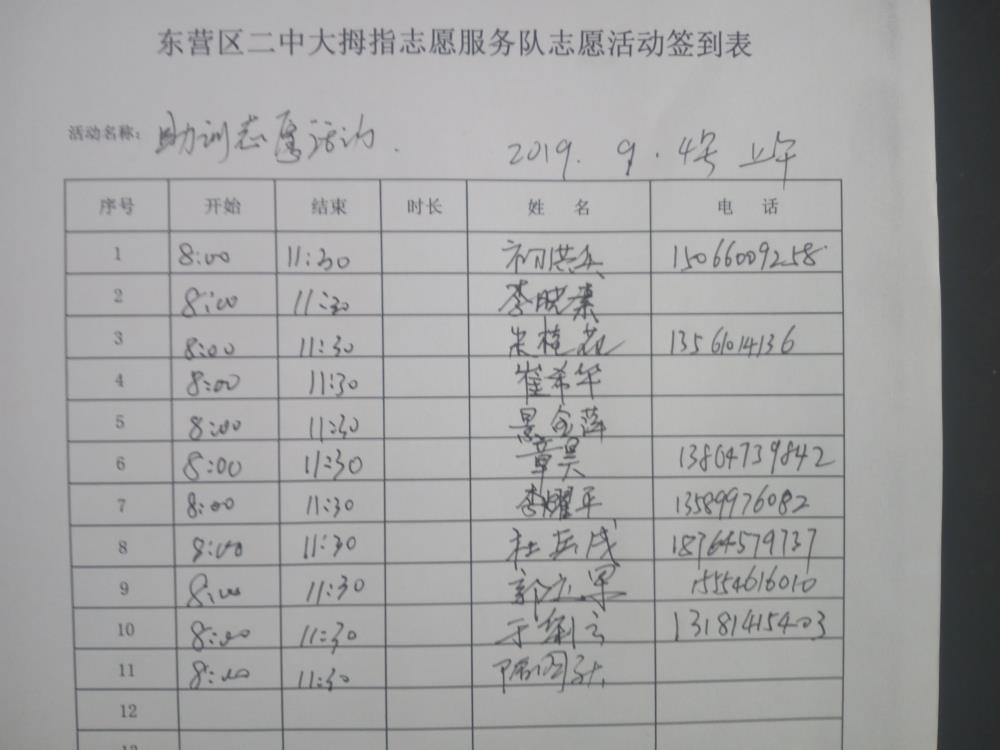 东营区二中大拇指志愿服务队志愿活动签到表
活动名称: 助训志愿活动. 2019. 9. 4号 上午
序号 开始 结束 时长 姓 名 电 话
1 8:00 11:30 初洪兵 15066009258
2 8:00 11:30 李晓
3 8:00 11:30 桂花 13561014136
4 8:00 11:30 崔希华
5 8:00 11:30 景金萍
6 8:00 11:30 章昊 13864739842
7 8:00 11:30 李耀平 13589976082
8 8:00 11:30 杜兵成 18764579737
9 8:00 11:30 郭立 15554616010
10 8:00 11:30 于 13181415403
11 8:00 11:30
12